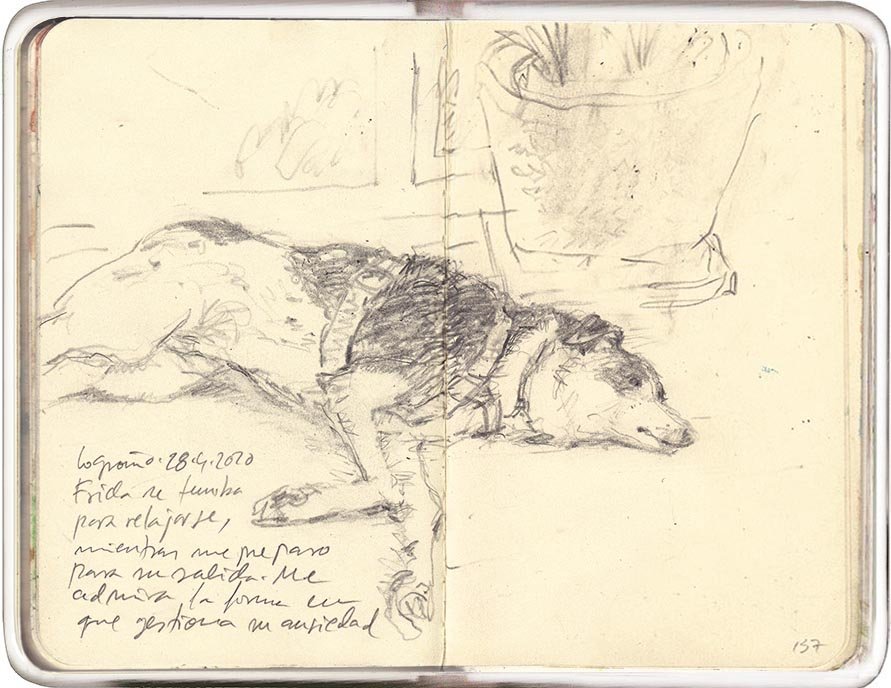 Logroño. 28.4.2020
Frida se tumba
para relajarse,
mientras me preparo
para su salida. Me
admira la forma en
que gestiona su ansiedad
157